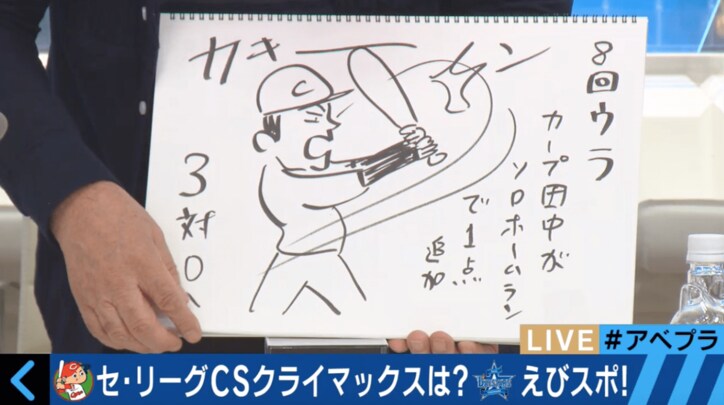 カキーン
8回ウラ
カープ田中が
ソロホームラン
で1点
追加
3対0へ
C
LIVE
#アベプラ
セ・リーグCSクライマックスは?
えびスポ!